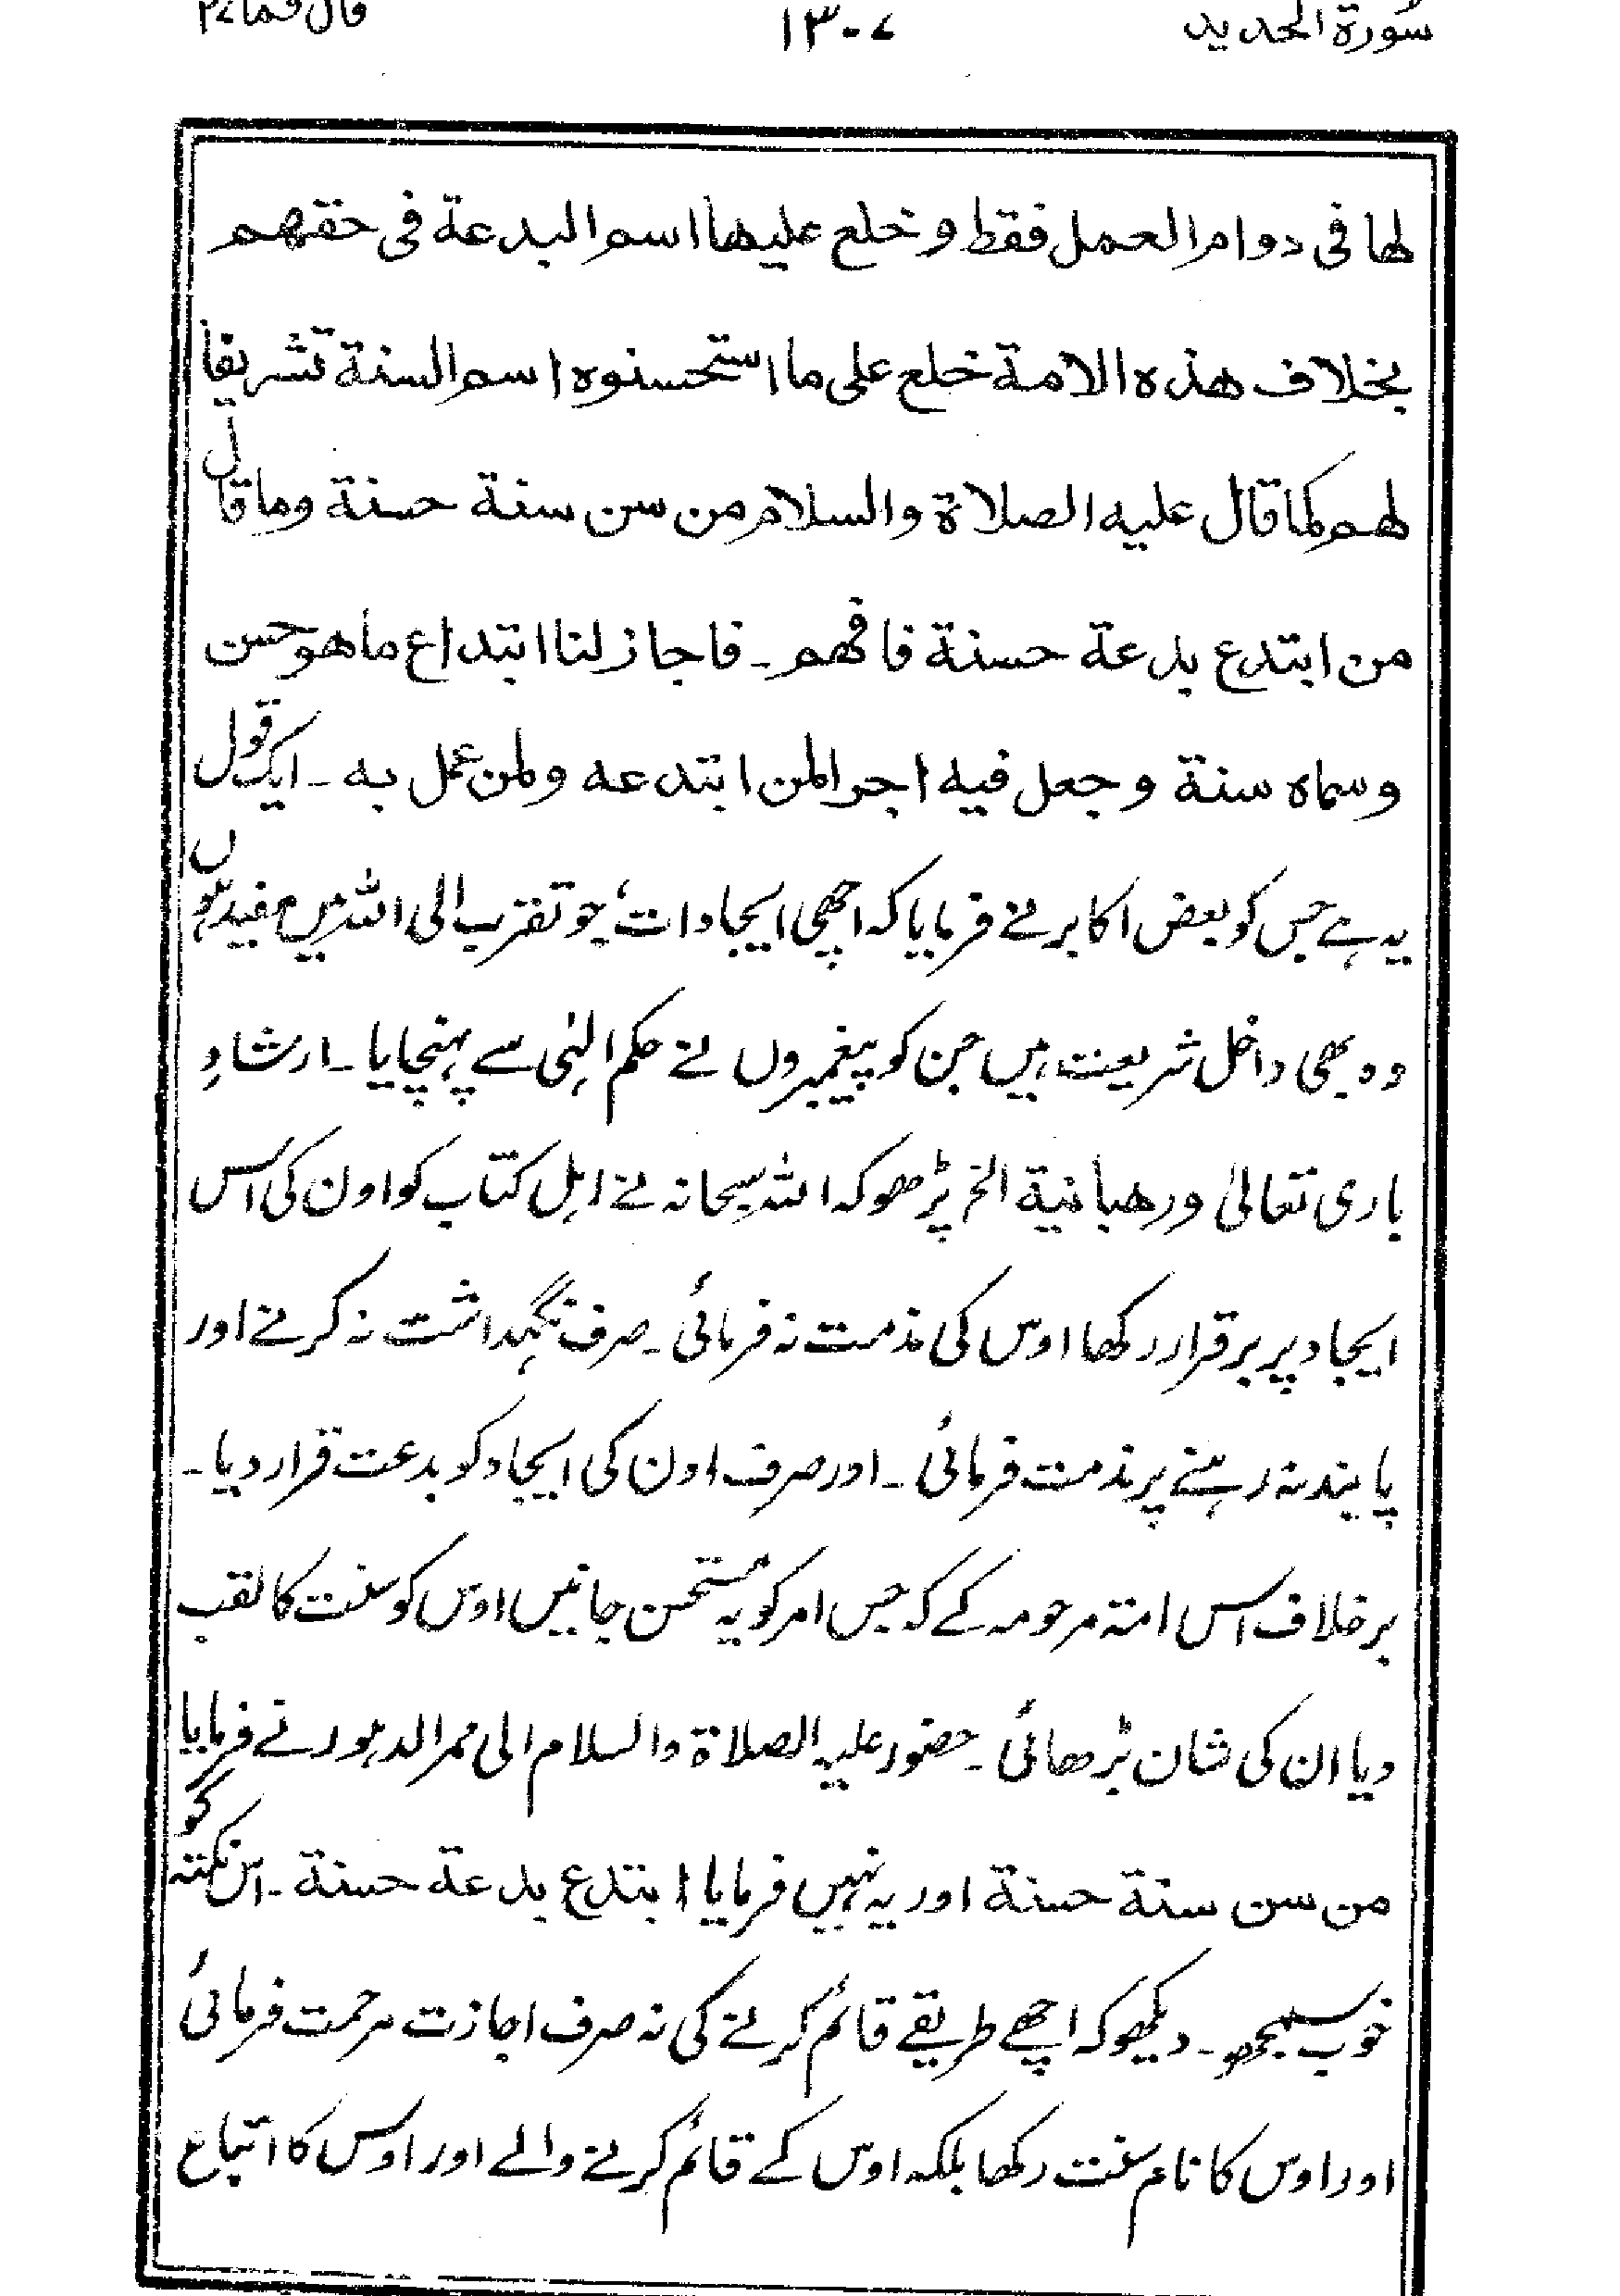 سورة الحديد ١٣٠٧ قال فما ٢٧
لها فى دوام العمل فقط و خلع عليها اسم البدعة فى حقهم
بخلاف هذه الامة خلع على ما استحسنوه اسم السنة تشريفا
لهم كما قال عليه الصلاة والسلام من سن سنة حسنة وما قال
من ابتدع بدعة حسنة فافهم۔ فاجاز لنا ابتداع ما هو حسن
وسماه سنة وجعل فيه اجرا لمن ابتدعه ولمن عمل به۔ ایک قول
یہ ہے جس کو بعض اکابر نے فرمایا کہ اچھی ایجادات، جو تقرب الی اللہ میں مفید ہوں
وہ بھی داخل شریعت ہیں جن کو پیغمبروں نے حکم الہٰی سے پہنچایا۔ ارشادِ
باری تعالیٰ ورهبانية الخ پڑھو کہ اللہ سبحانہ نے اہل کتاب کو اون کی اس
ایجاد پر برقرار رکھا اوس کی مذمت نہ فرمائی۔ صرف نگہداشت نہ کرنے اور
پابند نہ رہنے پر مذمت فرمائی۔ اور صرف اون کی ایجاد کو بدعت قرار دیا۔
برخلاف اس امتہ مرحومہ کے کہ جس امر کو یہ مستحسن جانیں اوس کو سنت کا لقب
دیا ان کی شان بڑھائی۔ حضور علیہ الصلاة والسلام الی ممر الدہور نے فرمایا
من سن سنة حسنة اور یہ نہیں فرمایا ابتدع بدعة حسنة۔ اس نکتہ کو
خوب سمجھو۔ دیکھو کہ اچھے طریقے قائم کرنے کی نہ صرف اجازت مرحمت فرمائی
اور اوس کا نام سنت رکھا بلکہ اوس کے قائم کرنے والے اور اوس کا اتباع